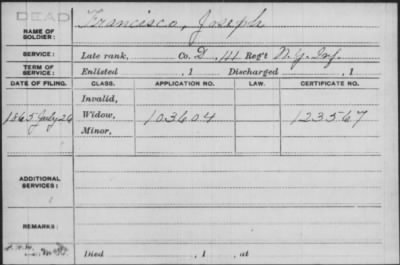 DEAD
NAME OF SOLDIER: Francisco, Joseph
SERVICE: Late rank, Co. D, 141 Reg't N.Y. Inf.
TERM OF SERVICE: Enlisted , 1 Discharged , 1
DATE OF FILING. CLASS. APPLICATION NO. LAW. CERTIFICATE NO.
Invalid,
1865 July 26 Widow, 103604 123567
Minor,
ADDITIONAL SERVICES:
REMARKS:
Died , 1 , at